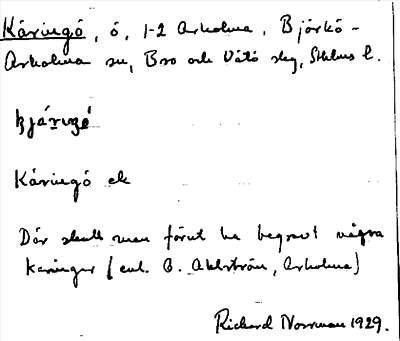 Käringö, ö, 1-2 Arholma, Björkö-
Arholma sn, Bro och Vätö skg, Sthlms l.
Käringö ek
Där skall man förut ha begravt några
käringar (enl. G. Ahlström, Arholma)
Richard Norrman 1929.